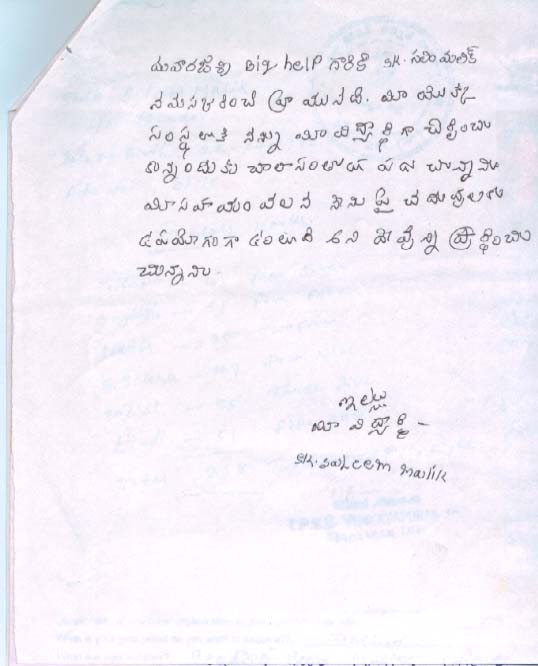 యువారాజేశ్వి Big help గారికి SK. సలీం మలిక్
నమస్కరించి వ్రాయునది. మీ యొక్క
సంస్థ లోకి నన్ను మీ విద్యార్థి గా చేర్పించు
కొన్నందుకు చాలా సంతోష పడుచున్నాను
మీ సహాయం వలన నేను పై చదువులకు
ఉపయోగంగా ఉంటుంది అని దేవున్ని ప్రార్థించు
చున్నాను.
ఇట్లు
మీ విద్యార్థి -
SK. saleem malik